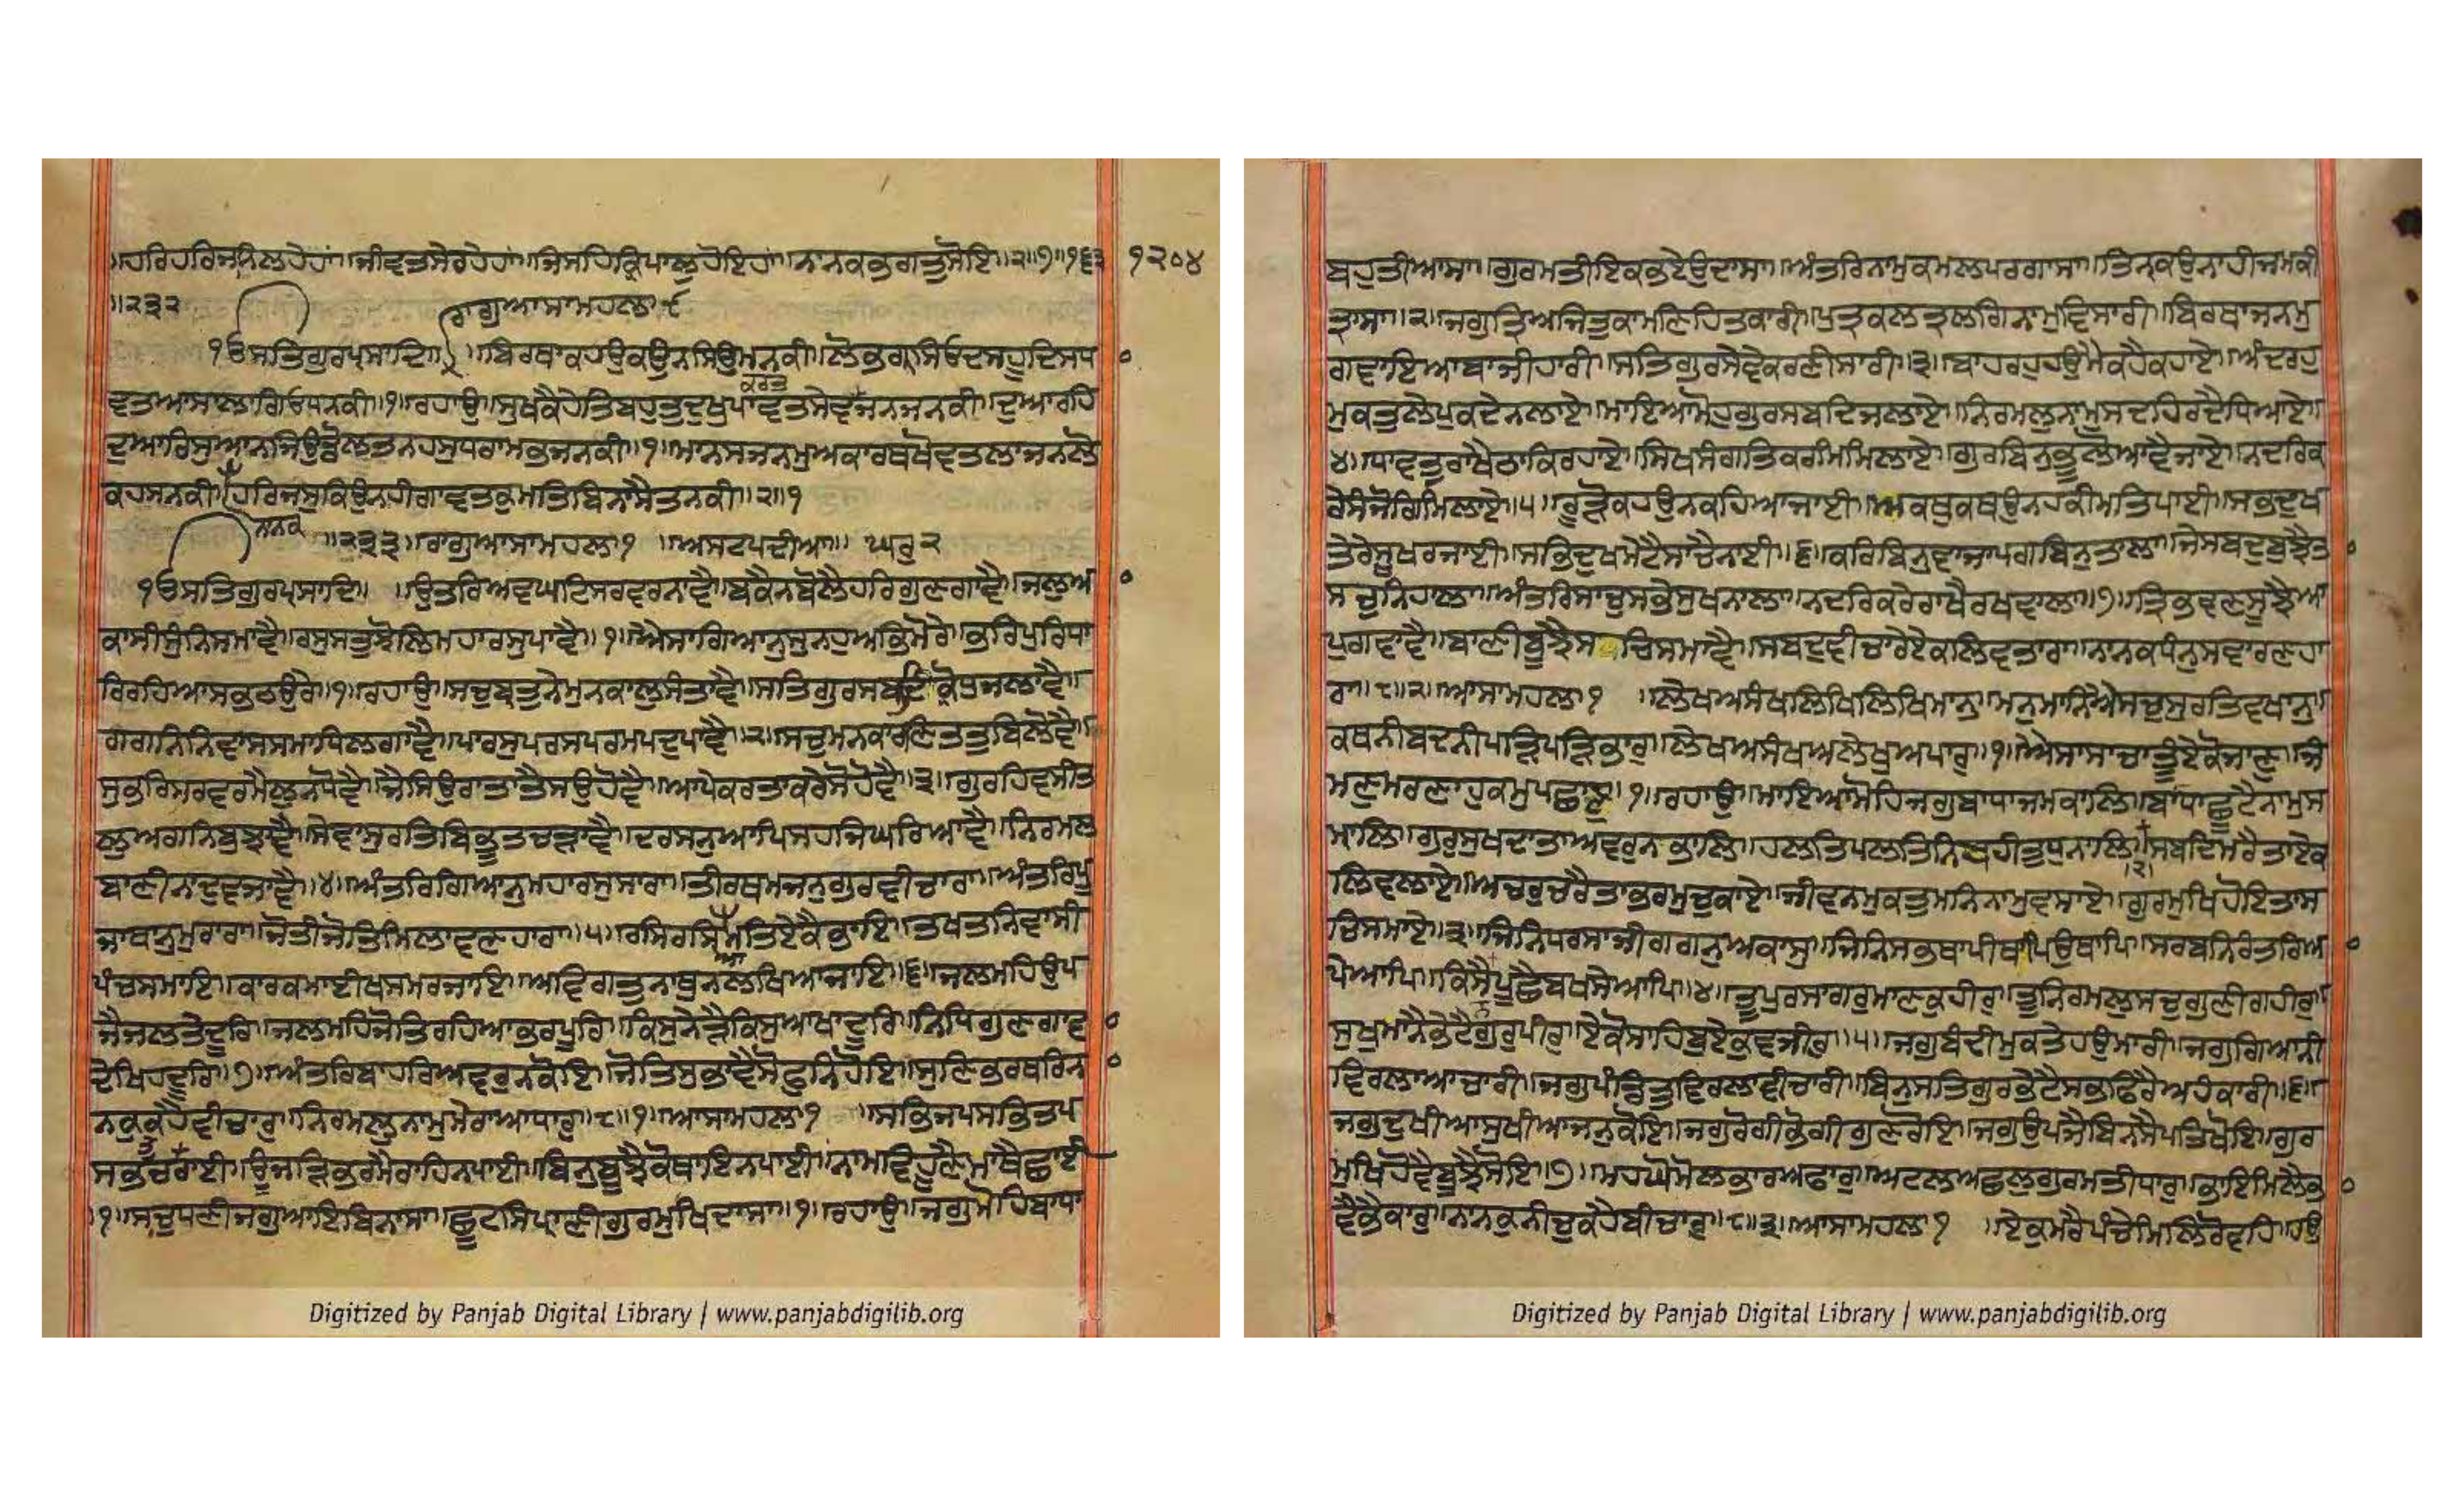 ॥ਹਰਿਹਰਿਜਨਿਲਹੇਹਾਂ॥ਜੀਵਤਸੇਰਹੇਹਾਂ॥ਜਿਸਹਿਕ੍ਰਿਪਾਲੁਹੋਇਹਾਂ॥ਨਾਨਕਭਗਤੁਸੋਇ॥੨॥੭॥੧੬੩ ੧੨੦੪
॥੨੩੨ ਰਾਗੁਆਸਾਮਹਲਾ੯
੧ਓਸਤਿਗੁਰਪ੍ਰਸਾਦਿ॥ ॥ਬਿਰਥਾਕਹਉਕਉਨਸਿਉਮਨਕੀ॥ਲੋਭਗ੍ਰਸਿਓਦਸਹੂਦਿਸਧਾ
ਕਰਤ
ਵਤਆਸਲਾਗਿਓਧਨਕੀ॥੧॥ਰਹਾਉ॥ਸੁਖਕੈਹੇਤਿਬਹੁਤੁਦੁਖੁਪਾਵਤਸੇਵਜਨਜਨਕੀ॥ਦੁਆਰਹਿ
ਦੁਆਰਿਸੁਆਨਜਿਉਡੋਲਤਨਹਸੁਧਰਾਮਭਜਨਕੀ॥੧॥ਮਾਨਸਜਨਮੁਅਕਾਰਥਖੋਵਤਲਾਜਨਲੋ
ਕਹਸਨਕੀ॥ਹਰਿਜਸੁਕਿਉਨਹੀਗਾਵਤਕੁਮਤਿਬਿਨਾਸੈਤਨਕੀ॥੨॥੧
ਨਾਨਕ ॥੨੩੩॥ਰਾਗੁਆਸਾਮਹਲਾ੧ ॥ਅਸਟਪਦੀਆ॥ ਘਰੁ੨
੧ਓਸਤਿਗੁਰਪ੍ਰਸਾਦਿ॥ ॥ਉਤਰਿਅਵਘਟਿਸਰਵਰਨਾਵੈ॥ਬਕੈਨਬੋਲੈਹਰਿਗੁਣਗਾਵੈ॥ਜਲੁਅ
ਕਾਸੀਸੁੰਨਿਸਮਾਵੈ॥ਰਸੁਸਤੁਝੋਲਿਮਹਾਰਸੁਪਾਵੈ॥੧॥ਐਸਾਗਿਆਨੁਸੁਨਹੁਅਭਿਮੋਰੇ॥ਭਰਿਪੁਰਿਧਾ
ਰਿਰਹਿਆਸਭਠਉਰੇ॥੧॥ਰਹਾਉ॥ਸਚੁਬ੍ਰਤੁਨੇਮੁਨਕਾਲੁਸੰਤਾਵੈ॥ਸਤਿਗੁਰਸਬਦਿਕ੍ਰੋਧੁਜਲਾਵੈ॥
ਗਗਨਿਨਿਵਾਸਸਮਾਧਿਲਗਾਵੈ॥ਪਾਰਸੁਪਰਸਪਰਮਪਦੁਪਾਵੈ॥੨॥ਸਚੁਮਨਕਾਰਣਿਤਤੁਬਿਲੋਵੈ॥
ਸੁਭਰਿਸਰਵਰਮੈਲੁਨਧੋਵੈ॥ਜੈਸਿਉਰਾਤਾਤੈਸਉਹੋਵੈ॥ਆਪੇਕਰਤਾਕਰੇਸੋਹੋਵੈ॥੩॥ਗੁਰਹਿਵਸੀਤ
ਲੁਅਗਨਿਬੁਝਾਵੈ॥ਸੇਵਾਸੁਰਤਿਬਿਭੂਤਚੜਾਵੈ॥ਦਰਸਨੁਆਪਿਸਹਜਿਘਰਿਆਵੈ॥ਨਿਰਮਲ
ਬਾਣੀਨਾਦੁਵਜਾਵੈ॥੪॥ਅੰਤਰਿਗਿਆਨੁਮਹਾਰਸੁਸਾਰਾ॥ਤੀਰਥਮਜਨੁਗੁਰਵੀਚਾਰਾ॥ਅੰਤਰਿਪੂ
ਜਾਥਾਨੁਮੁਰਾਰਾ॥ਜੋਤੀਜੋਤਿਮਿਲਾਵਣਹਾਰਾ॥੫॥ਰਸਿਰਸਿਮਤਿਏਕੈਭਾਇ॥ਤਖਤਨਿਵਾਸੀ
ਪੰਚਸਮਾਇ॥ਕਾਰਕਮਾਈਖਸਮਰਜਾਇ॥ਅਵਿਗਤੁਨਾਥੁਨਲਖਿਆਜਾਇ॥੬॥ਜਲਮਹਿਉਪ
ਜੈਜਲਤੇਦੂਰਿ॥ਜਲਮਹਿਜੋਤਿਰਹਿਆਭਰਪੂਰਿ॥ਕਿਸੁਨੇੜੈਕਿਸੁਆਖਾਦੂਰਿ॥ਨਿਧਿਗੁਣਗਾਵਾ
ਦੇਖਿਹਦੂਰਿ॥੭॥ਅੰਤਰਿਬਾਹਰਿਅਵਰੁਨਕੋਇ॥ਜੋਤਿਸੁਭਾਵੈਸੋਫੁਨਿਹੋਇ॥ਸੁਣਿਭਰਥਰਿਨਾ
ਨਕੁਕਹੈਵੀਚਾਰੁ॥ਨਿਰਮਲੁਨਾਮੁਮੇਰਾਆਧਾਰੁ॥੮॥੧॥ਆਸਾਮਹਲਾ੧ ॥ਸਭਿਜਪਸਭਿਤਪ
ਸਭਚਤੁਰਾਈ॥ਊਜੜਿਭਰਮੈਰਾਹਿਨਪਾਈ॥ਬਿਨੁਬੂਝੈਕੋਥਾਇਨਪਾਈ॥ਨਾਮਵਿਹੂਣੈਮਾਥੈਛਾਈ
॥੧॥ਸਾਚੁਧਣੀਜਗੁਆਇਬਿਨਾਸਾ॥ਛੂਟਸਿਪ੍ਰਾਣੀਗੁਰਮੁਖਿਦਾਸਾ॥੧॥ਰਹਾਉ॥ਜਗੁਮੋਹਿਬਾਧਾ
ਬਹੁਤੀਆਸਾ॥ਗੁਰਮਤੀਇਕਭਏਉਦਾਸਾ॥ਅੰਤਰਿਨਾਮੁਕਮਲਪਰਗਾਸਾ॥ਤਿਨ੍ਹਕਉਨਾਹੀਜਮਕੀ
ਤ੍ਰਾਸਾ॥੨॥ਜਗੁਤ੍ਰਿਅਜਿਤੁਕਾਮਣਿਹਿਤਕਾਰੀ॥ਪੁਤ੍ਰਕਲਤ੍ਰਲਗਿਨਾਮੁਵਿਸਾਰੀ॥ਬਿਰਥਾਜਨਮੁ
ਗਵਾਇਆਬਾਜੀਹਾਰੀ॥ਸਤਿਗੁਰਸੇਵੇਕਰਣੀਸਾਰੀ॥੩॥ਬਾਹਰਹੁਹਉਮੈਕਹੈਕਹਾਏ॥ਅੰਦਰਹੁ
ਮੁਕਤੁਲੇਪੁਕਦੇਨਲਾਏ॥ਮਾਇਆਮੋਹੁਗੁਰਸਬਦਿਜਲਾਏ॥ਨਿਰਮਲੁਨਾਮੁਸਦਹਿਰਦੈਧਿਆਏ॥
੪॥ਧਾਵਤੁਰਾਖੈਠਾਕਿਰਹਾਏ॥ਸਿਖਸੰਗਤਿਕਰਮਿਮਿਲਾਏ॥ਗੁਰਬਿਨੁਭੂਲੋਆਵੈਜਾਏ॥ਨਦਰਿਕ
ਰੇਸੰਜੋਗਿਮਿਲਾਏ॥੫॥ਰੂੜੋਕਹਉਨਕਹਿਆਜਾਈ॥ਅਕਥੁਕਥਉਨਹਕੀਮਤਿਪਾਈ॥ਸਭਦੁਖ
ਤੇਰੇਸੂਖਰਜਾਈ॥ਸਭਿਦੁਖਮੇਟੈਸਾਚੈਨਾਈ॥੬॥ਕਰਿਬਿਨੁਵਾਜਾਪਗਬਿਨੁਤਾਲਾ॥ਜੇਸਬਦੁਬੁਝੈਤਾ
ਸਚੁਨਿਹਾਲਾ॥ਅੰਤਰਿਸਾਚੁਸਭੇਸੁਖਨਾਲਾ॥ਨਦਰਿਕਰੇਰਾਖੈਰਖਵਾਲਾ॥੭॥ਤ੍ਰਿਭਵਣਸੂਝੈਆ
ਪੁਗਵਾਵੈ॥ਬਾਣੀਬੂਝੈਸਚਿਸਮਾਵੈ॥ਸਬਦੁਵੀਚਾਰੇਏਕਲਿਵਤਾਰਾ॥ਨਾਨਕਧੰਨੁਸਵਾਰਣਹਾ
ਰਾ॥੮॥੨॥ਆਸਾਮਹਲਾ੧ ॥ਲੇਖਅਸੰਖਲਿਖਿਲਿਖਿਮਾਨੁ॥ਮਨੁਮਾਨਿਐਸਚੁਸੁਰਤਿਵਖਾਨੁ॥
ਕਥਨੀਬਦਨੀਪੜਿਪੜਿਭਾਰੁ॥ਲੇਖਅਸੰਖਅਲੇਖੁਅਪਾਰੁ॥੧॥ਐਸਾਸਾਚਾਤੂੰਏਕੋਜਾਣੁ॥ਜੰ
ਮਣੁਮਰਣਾਹੁਕਮੁਪਛਾਣੁ॥੧॥ਰਹਾਉ॥ਮਾਇਆਮੋਹਿਜਗੁਬਾਧਾਜਮਕਾਲਿ॥ਬਾਂਧਾਛੂਟੈਨਾਮੁਸ
ਮਾਲਿ॥ਗੁਰੁਸੁਖਦਾਤਾਅਵਰੁਨਭਾਲਿ॥ਹਲਤਿਪਲਤਿਨਿਬਹੀਤੁਧੁਨਾਲਿ॥੨॥ਸਬਦਿਮਰੈਤਾਂਏਕ
ਲਿਵਲਾਏ॥ਅਚਰੁਚਰੈਤਾਂਭਰਮੁਚੁਕਾਏ॥ਜੀਵਨਮੁਕਤੁਮਨਿਨਾਮੁਵਸਾਏ॥ਗੁਰਮੁਖਿਹੋਇਤਾਸ
ਚਿਸਮਾਏ॥੩॥ਜਿਨਿਧਰਸਾਜੀਗਗਨੁਅਕਾਸੁ॥ਜਿਨਿਸਭਥਾਪੀਥਾਪਿਉਥਾਪਿ॥ਸਰਬਨਿਰੰਤਰਿਆ
ਪੇਆਪਿ॥ਕਿਸੈਪੂਛੈਬਖਸੇਆਪਿ॥੪॥ਤੂਪੁਰਸਾਗਰੁਮਾਣਕਹੀਰੁ॥ਤੂਨਿਰਮਲੁਸਚੁਗੁਣੀਗਹੀਰੁ॥
ਸੁਖੁਮਾਨੈਭੇਟੈਗੁਰਪੀਰੁ॥ਏਕੋਸਾਹਿਬੁਏਕੁਵਜੀਰੁ॥੫॥ਜਗੁਬੰਦੀਮੁਕਤੇਹਉਮਾਰੀ॥ਜਗੁਗਿਆਨੀ
ਵਿਰਲਾਆਚਾਰੀ॥ਜਗੁਪੰਡਿਤੁਵਿਰਲਾਵੀਚਾਰੀ॥ਬਿਨੁਸਤਿਗੁਰਭੇਟੈਸਭਫਿਰੈਅਹੰਕਾਰੀ॥੬॥
ਜਗੁਦੁਖੀਆਸੁਖੀਆਜਨੁਕੋਇ॥ਜਗੁਰੋਗੀਭੋਗੀਗੁਣਰੋਇ॥ਜਗੁਉਪਜੈਬਿਨਸੈਪਤਿਖੋਇ॥ਗੁਰ
ਮੁਖਿਹੋਵੈਬੂਝੈਸੋਇ॥੭॥ਮਹਘੋਮੋਲਭਾਰਅਫਾਰੁ॥ਅਟਲਅਛਲੁਗੁਰਮਤੀਧਾਰੁ॥ਭਾਇਮਿਲੈਭਾ
ਵੈਭੈਕਾਰੁ॥ਨਾਨਕੁਨੀਚੁਕਹੈਬੀਚਾਰੁ॥੮॥੩॥ਆਸਾਮਹਲਾ੧ ॥ਏਕੁਮਰੈਪੰਚੇਮਿਲਿਰੋਵਹਿ॥ਹਉ
Digitized by Panjab Digital Library | www.panjabdigilib.org
Digitized by Panjab Digital Library | www.panjabdigilib.org